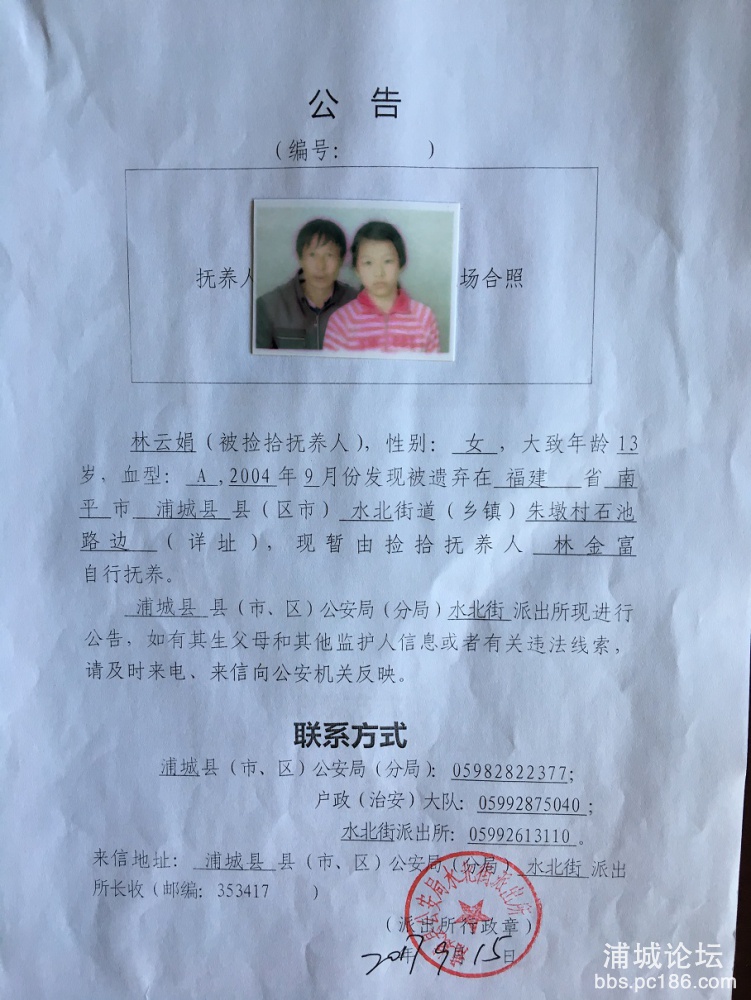 公 告
(编号: )
抚养人 场合照
林云娟(被捡拾抚养人),性别: 女 ,大致年龄13
岁,血型: A ,2004年9月份发现被遗弃在 福建 省 南
平市 浦城县 县(区市) 水北街道(乡镇)朱墩村石池
路边 (详址),现暂由捡拾抚养人 林金富
自行抚养。
浦城县 县(市、区)公安局(分局)水北街 派出所现进行
公告,如有其生父母和其他监护人信息或者有关违法线索,
请及时来电、来信向公安机关反映。
联系方式
浦城县(市、区)公安局(分局): 05982822377;
户政(治安)大队: 05992875040;
水北街派出所: 05992613110 。
来信地址: 浦城县 县(市、区)公安局(分局) 水北街 派出
所长收(邮编: 353417 )
(派出所行政章)
2017年9月15日
公安局水北街派出所
浦城论坛
bbs.pc186.com